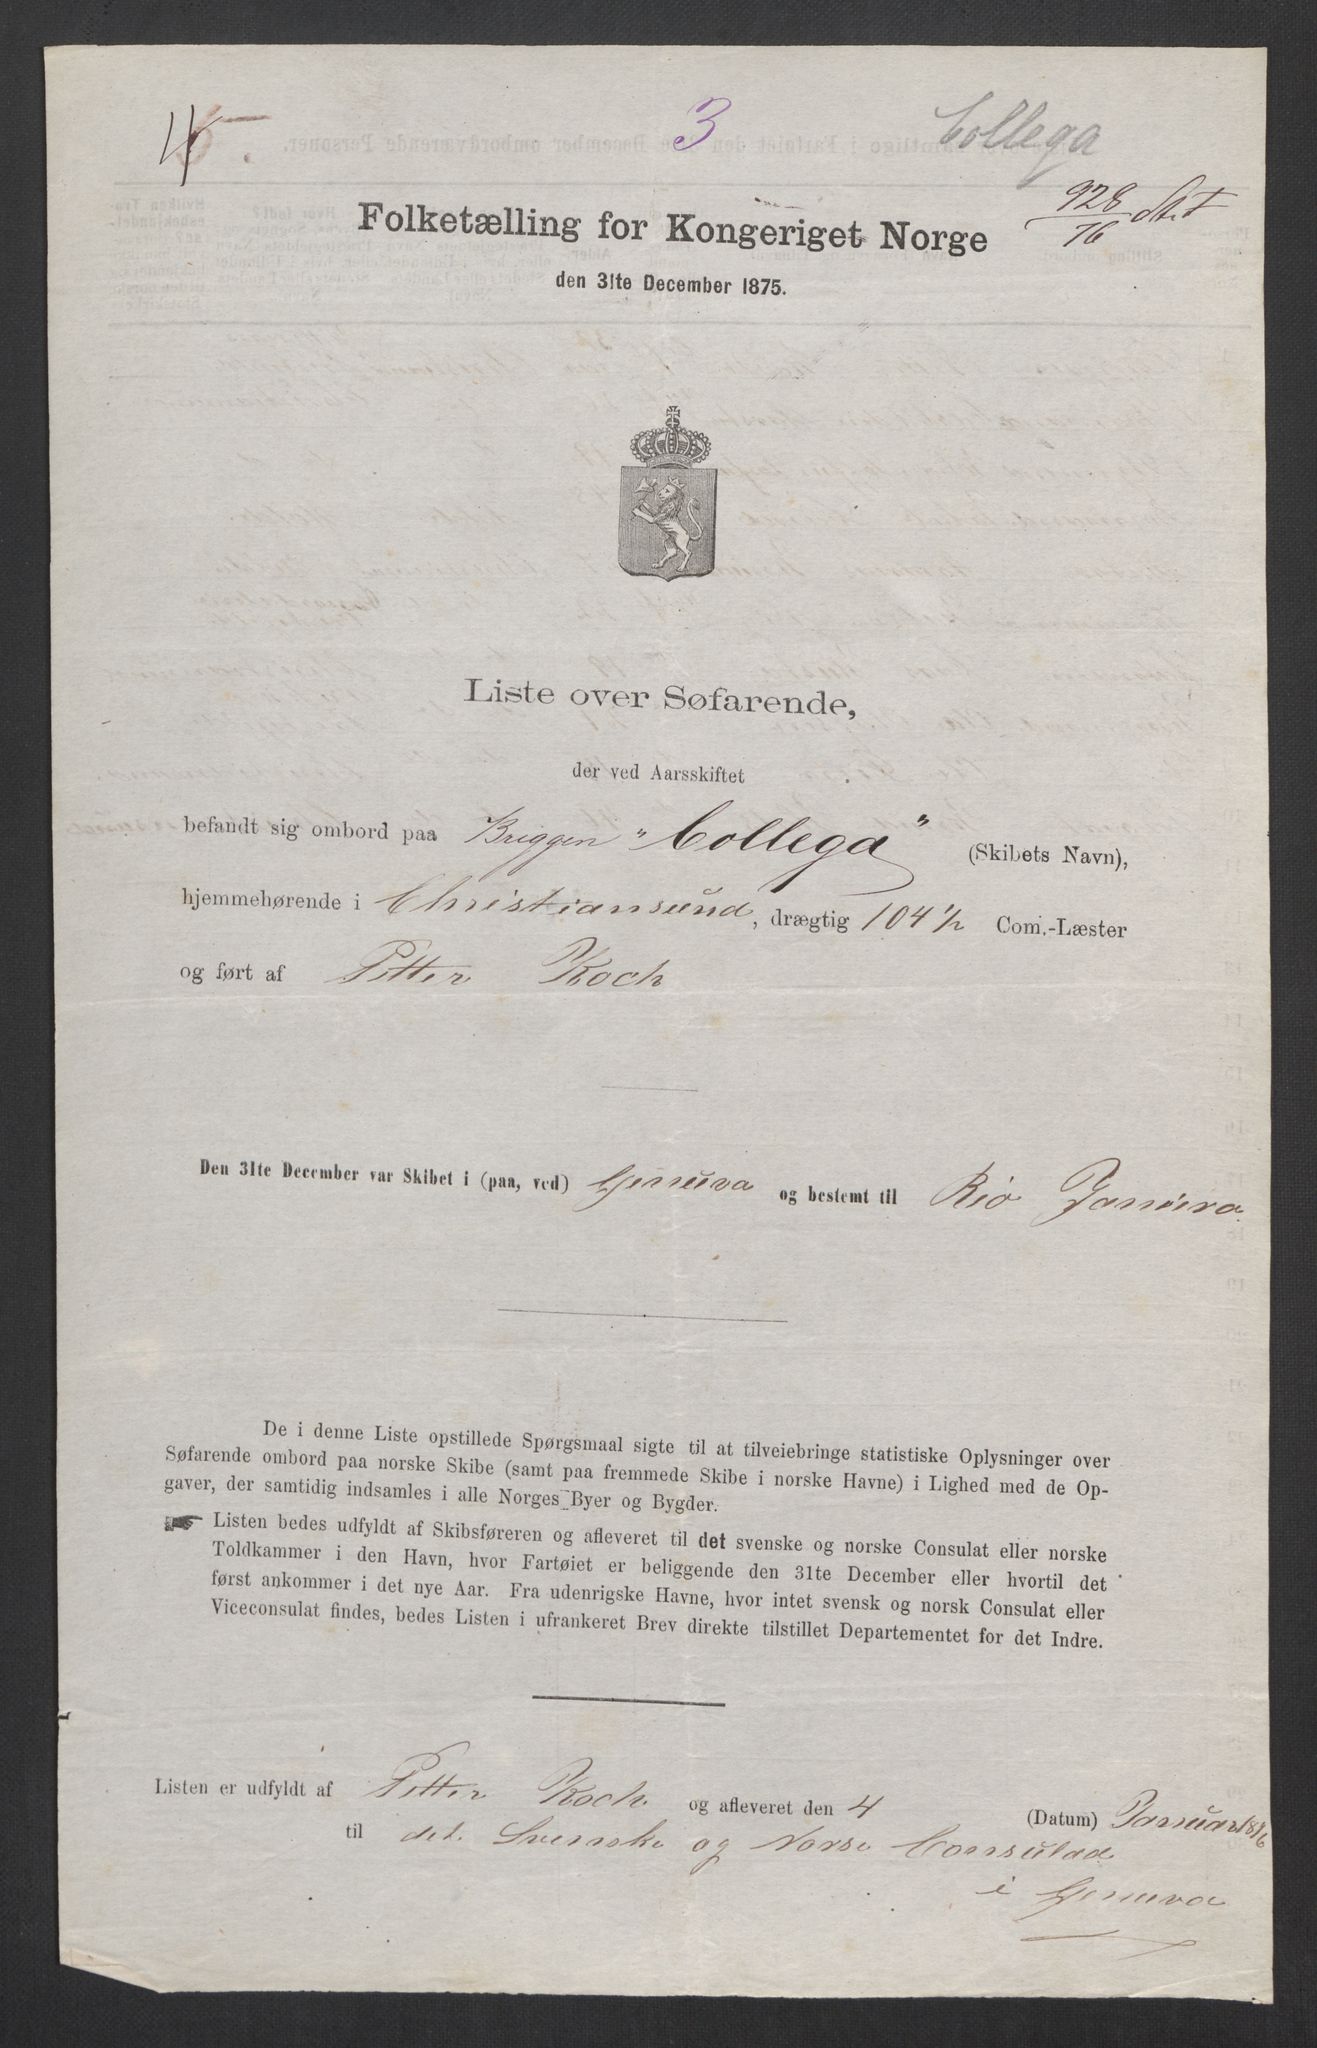 4
3
Collega
Folketælling for Kongeriget Norge
928/76
den 31te December 1875.
Liste over Søfarende,
der ved Aarsskiftet
befandt sig ombord paa Briggen "Collega" (Skibets Navn),
hjemmehørende i Christiansund, drægtig 104½ Com.-Læster
og ført af Petter Koch
Den 31te December var Skibet i (paa, ved) Genuva og bestemt til Rio Janiero.
De i denne Liste opstillede Spørgsmaal sigte til at tilveiebringe statistiske Oplysninger over
Søfarende ombord paa norske Skibe (samt paa fremmede Skibe i norske Havne) i Lighed med de Op-
gaver, der samtidig indsamles i alle Norges Byer og Bygder.
Listen bedes udfyldt af Skibsføreren og afleveret til det svenske og norske Consulat eller norske
Toldkammer i den Havn, hvor Fartøiet er beliggende den 31te December eller hvortil det
først ankommer i det nye Aar. Fra udenrigske Havne, hvor intet svensk og norsk Consulat eller
Viceconsulat findes, bedes Listen i ufrankeret Brev direkte tilstillet Departementet for det Indre.
Listen er udfyldt af Petter Koch og afleveret den 4 (Datum) Januar 1876
til det Svenske og Norse Consulad
i Genuva